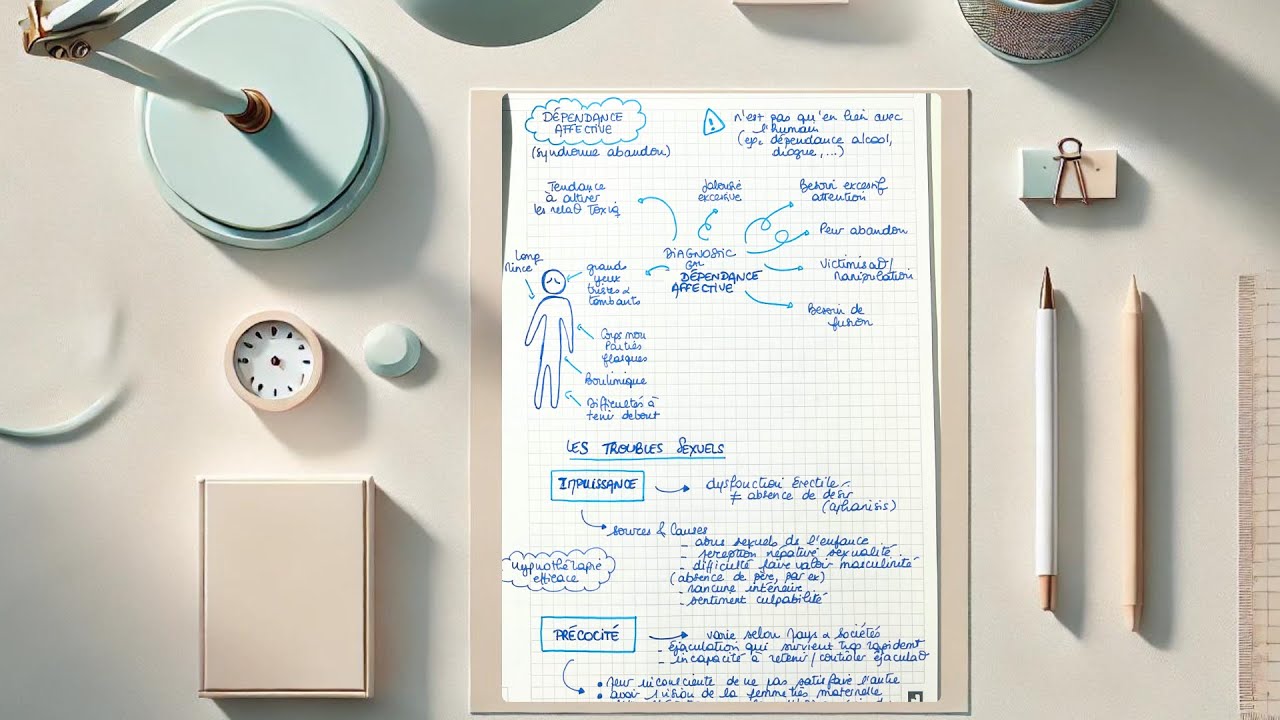 DÉPENDANCE
AFFECTIVE
(syndrome abandon)
n'est pas qu'en lien avec
l'humain
(ex. dépendance alcool,
drogue, ...)
Tendance
à attirer
les relat° toxiq
Jalousie
excessive
Besoin excessif
attention
Peur abandon
Victimisat°/
manipulation
Besoin de
fusion
DIAGNOSTIC
DÉPENDANCE
AFFECTIVE
Long
mince
grands
yeux
tristes &
tombants
Corps mou
Parties
flasques
Boulimique
Difficultés à
tenir debout
LES TROUBLES SEXUELS
IMPUISSANCE
dysfonction érectile
≠ absence de désir
(aphanisis)
sources & causes
- abus sexuels de l'enfance
- perception négative sexualité
- difficulté faire valoir masculinité
(absence de père, par ex)
- rancune intérieure
- sentiment culpabilité
Hypnothérapie
efficace
PRÉCOCITÉ
- varie selon pays & sociétés
- éjaculation qui survient trop rapident
- incapacité à retenir/contrôler éjaculat°
• peur inconsciente de ne pas satisfaire l'autre
• avoir 1 vision de la femme très maternelle